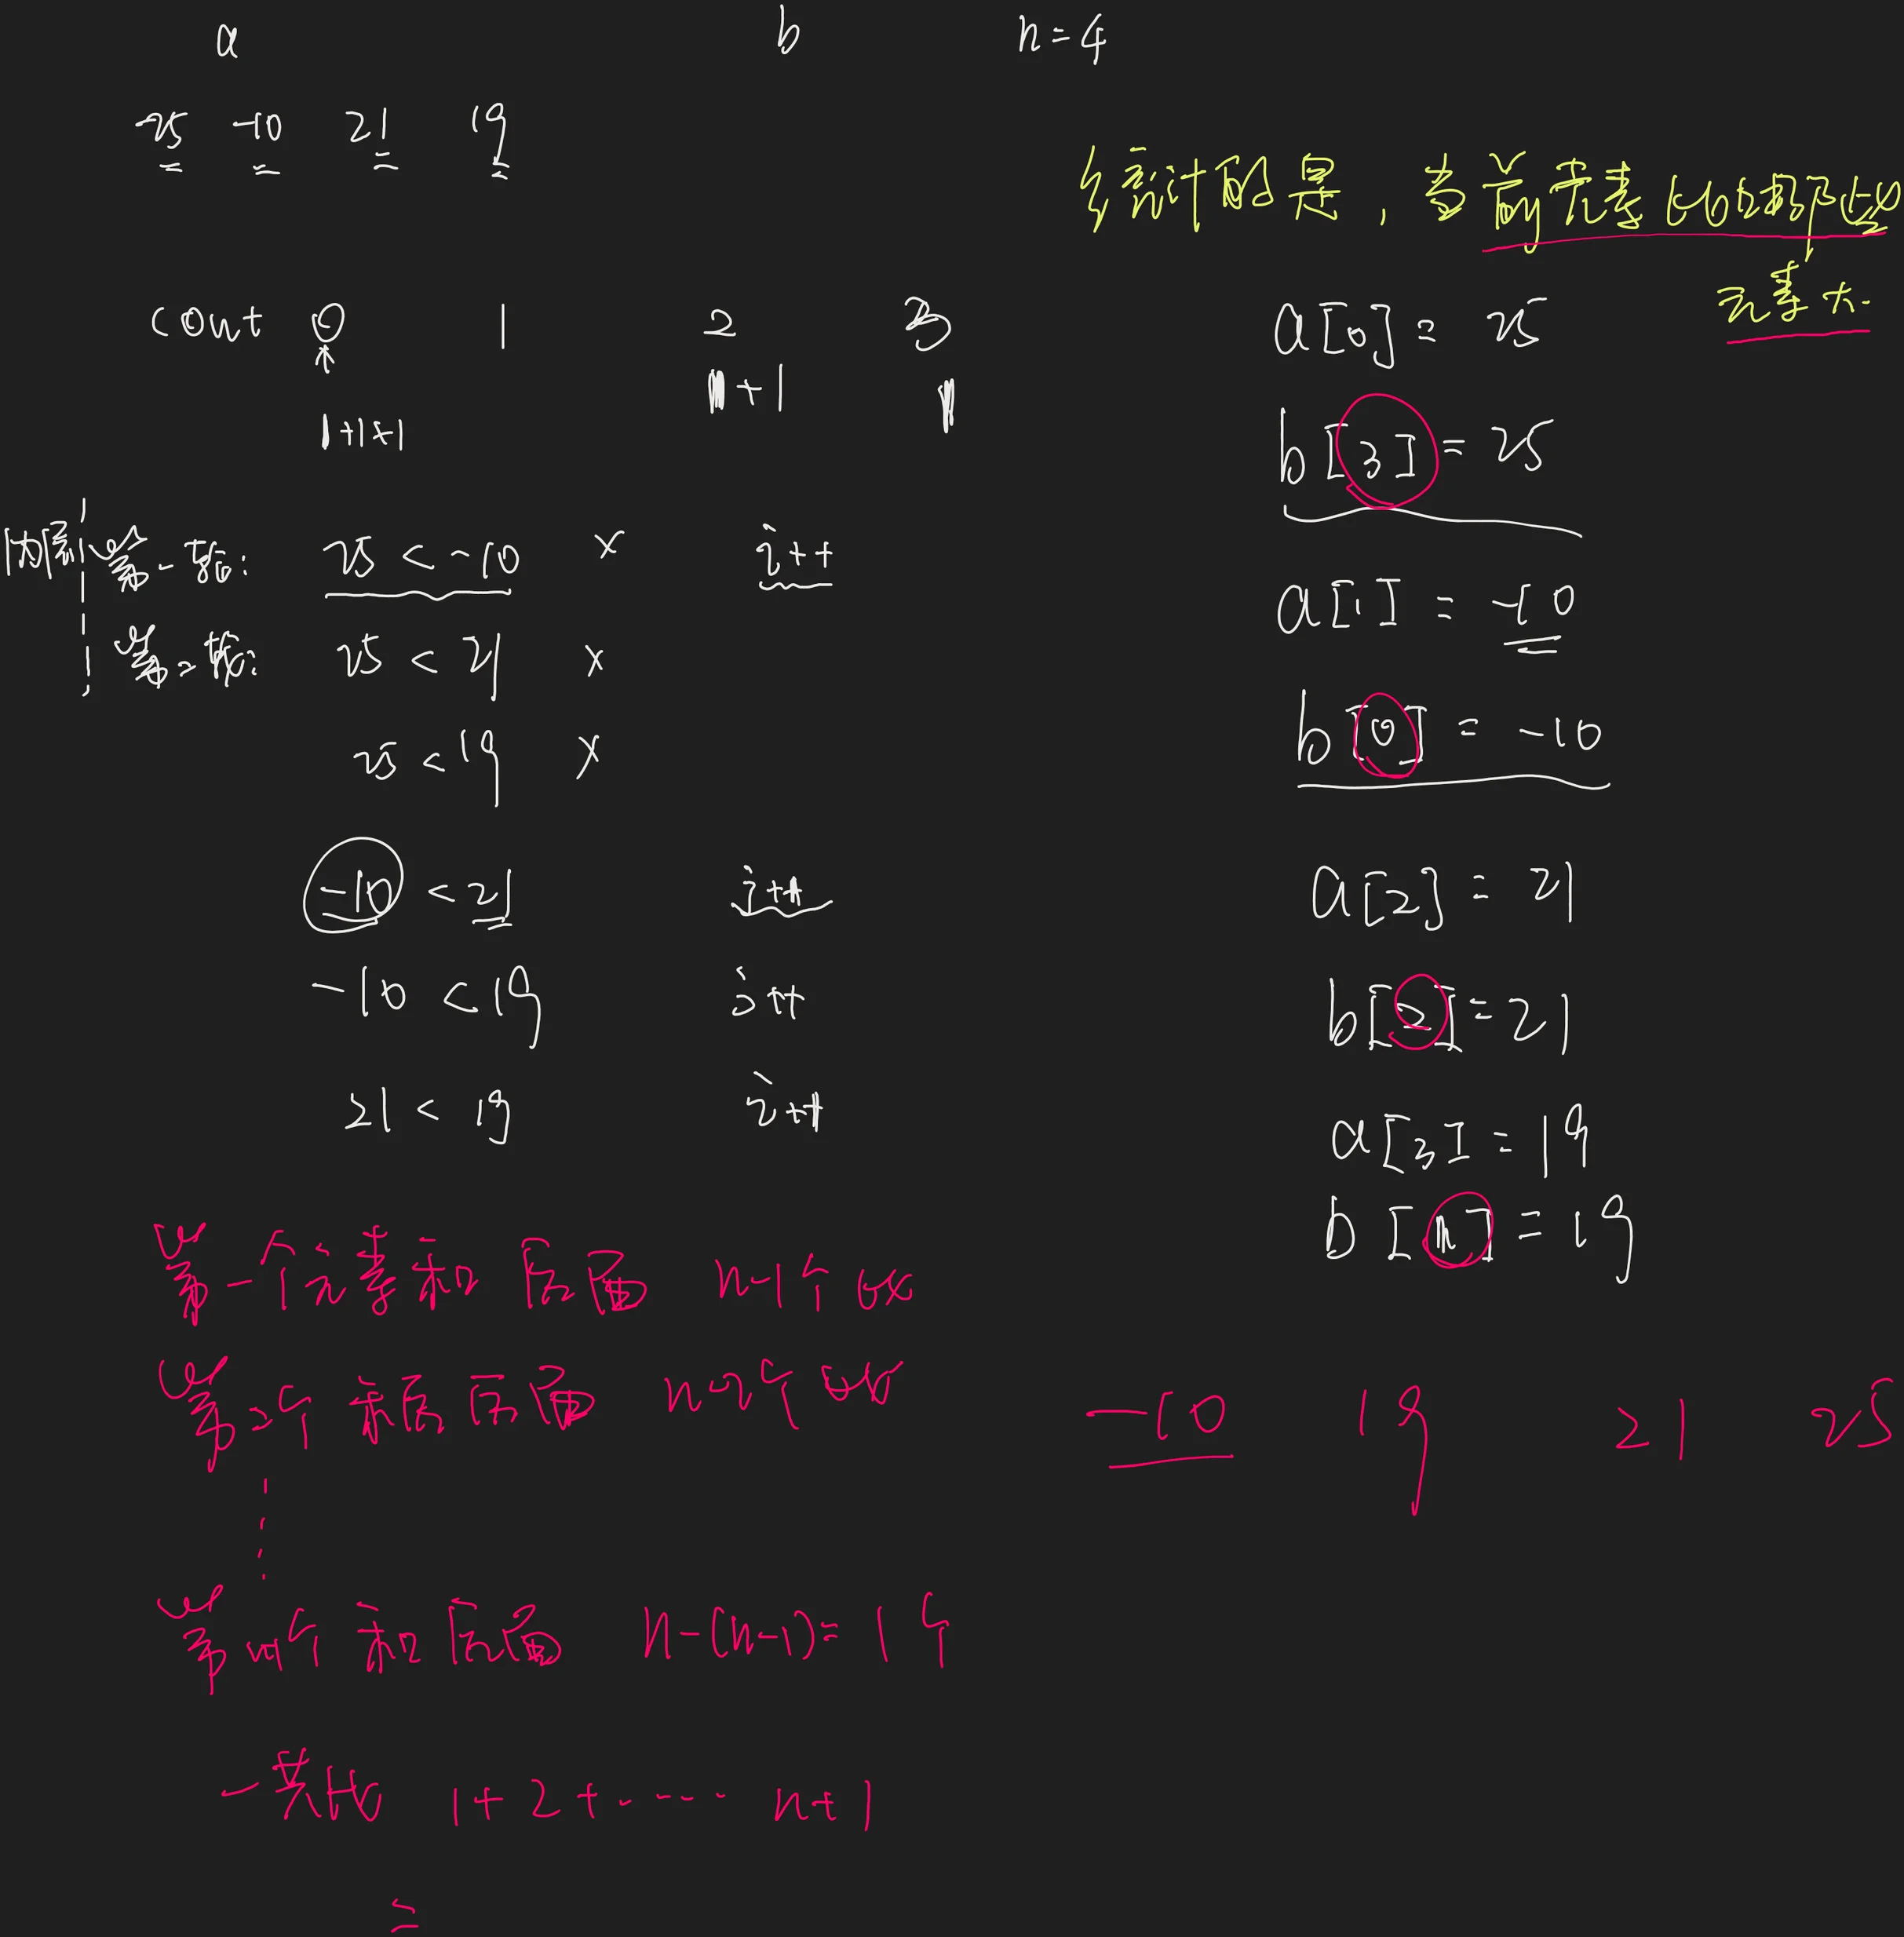 a b n=4
25 -10 21 19
统计的是，当前元素比数组中多少
元素大
count 0 1 2 3
1+1+1
+1
a[0]=25
b[3]=25
25<-10 × i++
25<21 ×
25<19 ×
a[1]=-10
b[0]=-10
-10<21 i++
-10<19 i++
21<19 i++
a[2]=21
b[2]=21
a[3]=19
b[n]=19
第一个元素和后面 n-1个比
第二个和后面 n-2个比
-10 19 21 25
个和后面 n-(n-1)=1个
一共比 1+2+····· n+1
=